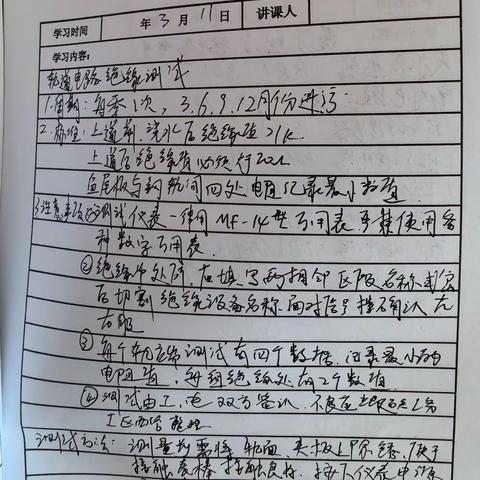 学习时间 年 3 月 11 日 讲课人
学习内容:
轨道电路绝缘测试
1. 周期: 每季1次, 3.6.9.12月份进行
2. 标准: 上道前 浇水后绝缘值>1K
上道后绝缘值必须大于20Ω
鱼尾板与钢轨间四处电阻 记录最小数值
3. 注意事项 测试仪表一律用MF-14型万用表, 严禁使用各
种数字万用表.
② 绝缘节处所, 在填写两相邻区段名称或
后切割绝缘设备名称. 面对信号 确认左
右股
③ 每个轨缝测试有四个数据, 记录最小的
电阻值, 每组绝缘处有2个数值
④ 测试由工, 电双方签认, 不良处 工务
工区 整理
测试方法: 测量均需将轨面, 夹板上除锈, 便于
接触表棒 接触良好. 按下仪表电源